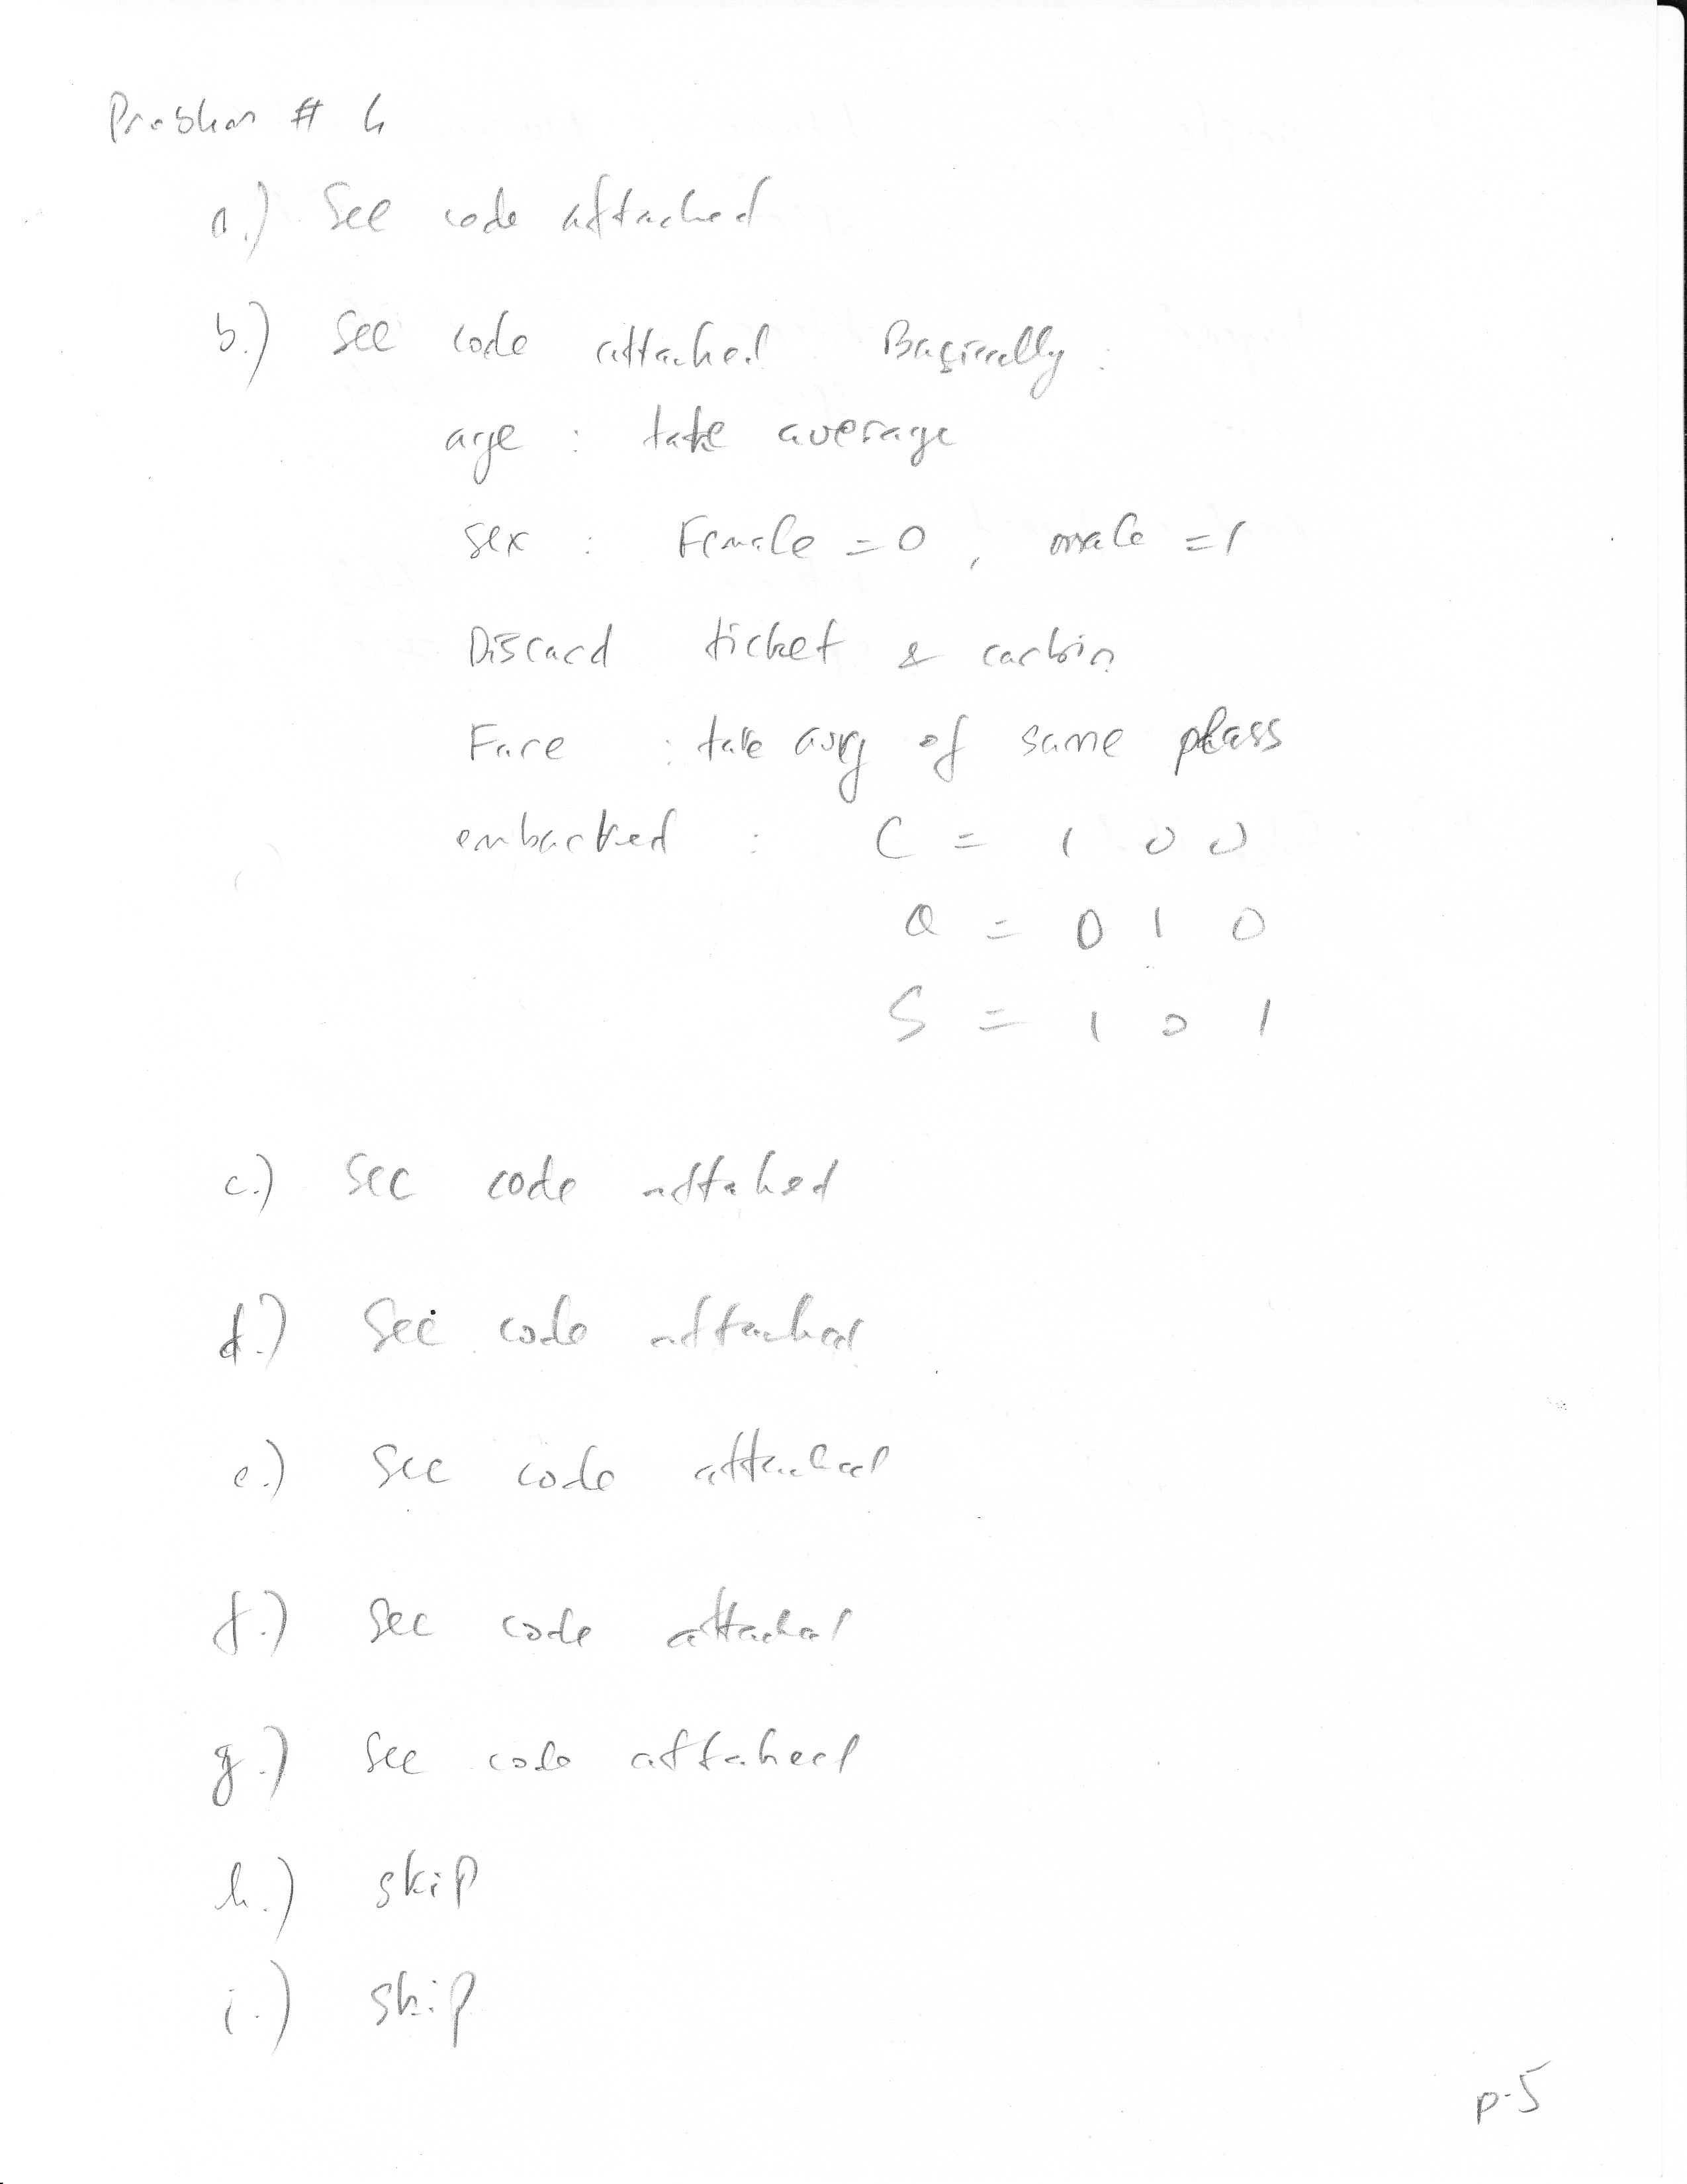 Problem # 4
a.) See code attached
b.) See code attached Basically :
age : take average
sex : Female = 0 , male = 1
Discard ticket & carbin
Fare : take avg of same pclass
embarked : C = 1 0 0
Q = 0 1 0
S = 1 0 1
c.) See code attahed
d.) See code attached
e.) See code attached
f.) See code attached
g.) See code attahed
h.) skip
i.) skip
p-5